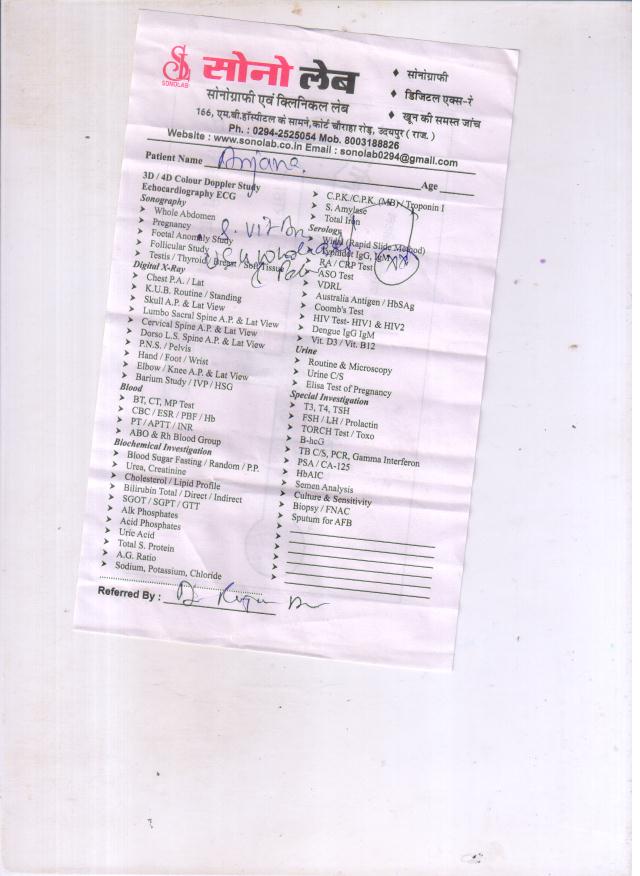 SL
SONOLAB
सोनो लेब
सोनोग्राफी एवं क्लिनिकल लेब
♦ सोनोग्राफी
♦ डिजिटल एक्स-रे
♦ खून की समस्त जांच
166, एम.बी.हॉस्पीटल के सामने,कोर्ट चौराहा रोड़, उदयपुर ( राज. )
Ph. : 0294-2525054 Mob. 8003188826
Website : www.sonolab.co.in Email : sonolab0294@gmail.com
Patient Name Anjana. Age
3D / 4D Colour Doppler Study
Echocardiography ECG
Sonography
➤ Whole Abdomen
➤ Pregnancy
➤ Foetal Anomaly Study
➤ Follicular Study
➤ Testis / Thyroid / Breast / Soft Tissue
Digital X-Ray
➤ Chest P.A. / Lat
➤ K.U.B. Routine / Standing
➤ Skull A.P. & Lat View
➤ Lumbo Sacral Spine A.P. & Lat View
➤ Cervical Spine A.P. & Lat View
➤ Dorso L.S. Spine A.P. & Lat View
➤ P.N.S. / Pelvis
➤ Hand / Foot / Wrist
➤ Elbow / Knee A.P. & Lat View
➤ Barium Study / IVP / HSG
Blood
➤ BT, CT, MP Test
➤ CBC / ESR / PBF / Hb
➤ PT / APTT / INR
➤ ABO & Rh Blood Group
Biochemical Investigation
➤ Blood Sugar Fasting / Random / P.P.
➤ Urea, Creatinine
➤ Cholesterol / Lipid Profile
➤ Bilirubin Total / Direct / Indirect
➤ SGOT / SGPT / GTT
➤ Alk Phosphates
➤ Acid Phosphates
➤ Uric Acid
➤ Total S. Protein
➤ A.G. Ratio
➤ Sodium, Potassium, Chloride
➤ C.P.K./C.P.K. (MB)/ Troponin I
➤ S. Amylase
➤ Total Iron
Serology
➤ Widal (Rapid Slide Method)
➤ Typhidot IgG, IgM
➤ RA / CRP Test
➤ ASO Test
➤ VDRL
➤ Australia Antigen / HbSAg
➤ Coomb's Test
➤ HIV Test- HIV1 & HIV2
➤ Dengue IgG IgM
➤ Vit. D3 / Vit. B12
Urine
➤ Routine & Microscopy
➤ Urine C/S
➤ Elisa Test of Pregnancy
Special Investigation
➤ T3, T4, TSH
➤ FSH / LH / Prolactin
➤ TORCH Test / Toxo
➤ B-hcG
➤ TB C/S, PCR, Gamma Interferon
➤ PSA / CA-125
➤ HbAIC
➤ Semen Analysis
➤ Culture & Sensitivity
➤ Biopsy / FNAC
➤ Sputum for AFB
S. Vit
Referred By : Dr